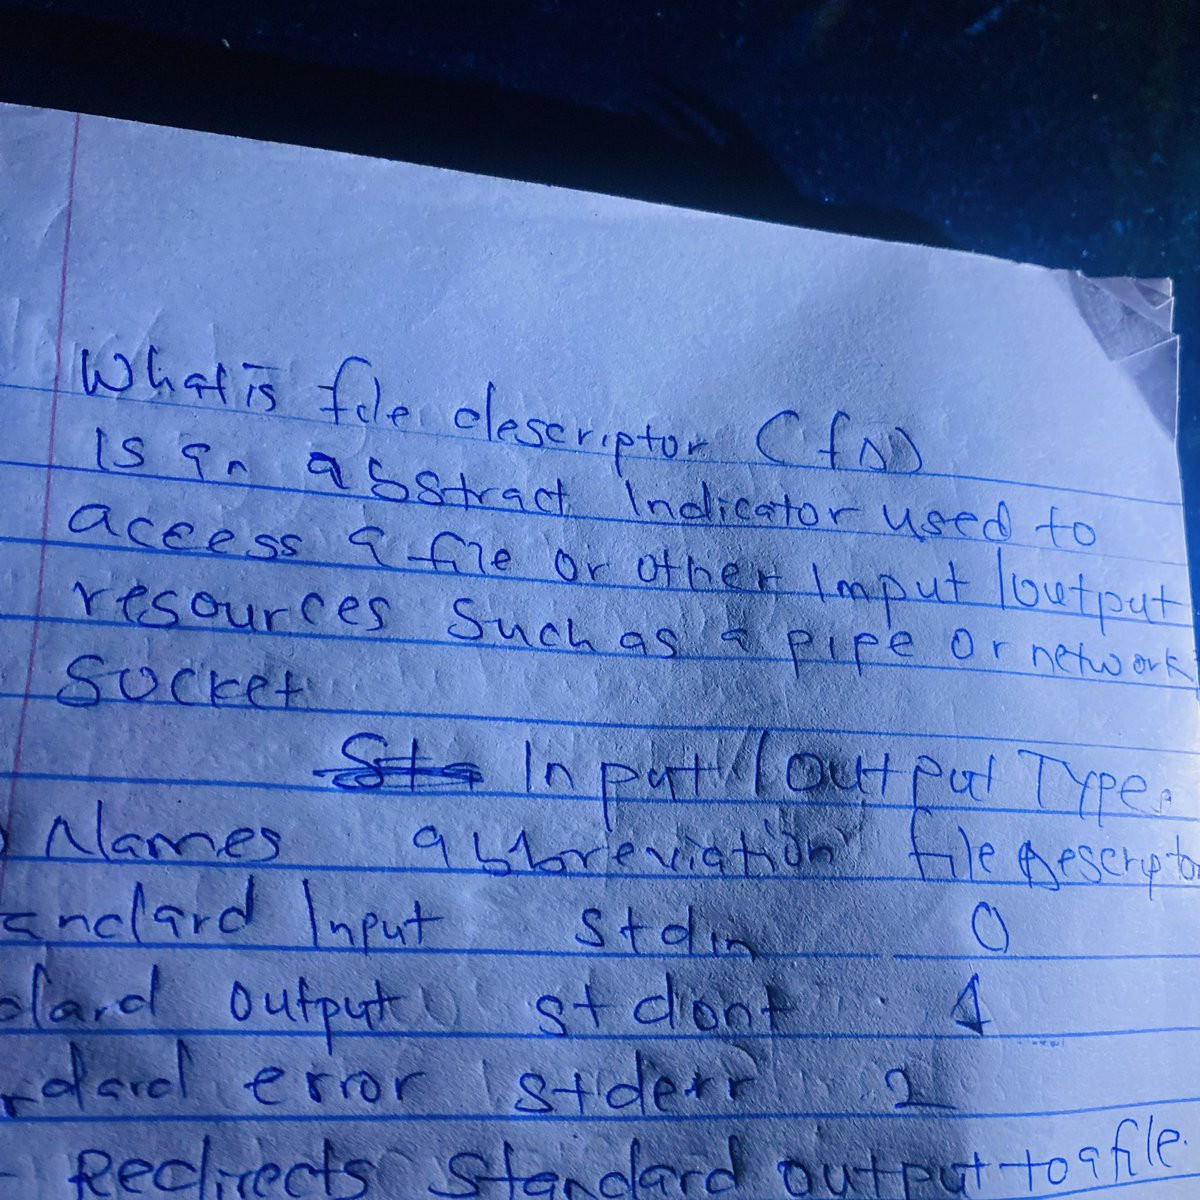 What is file descriptor (fD)
Is an abstract Indicator used to
access a file or other Imput/output
resources such as a pipe or network
Socket
Input/Output Type
Names abbreviation file Descripto
andard Input stdin 0
dard output stdont 1
ndard error stderr 2
Redirects Standard output to a file.